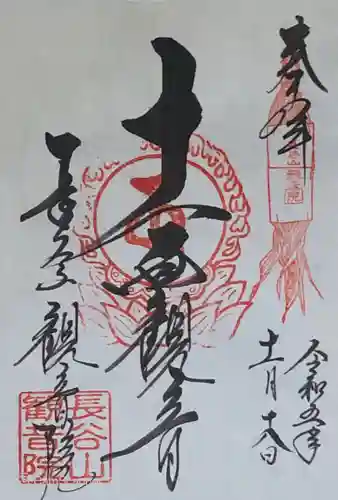 奉拝
十一面観音
観音院
令和五年
十一月十八日
長谷山
観音院